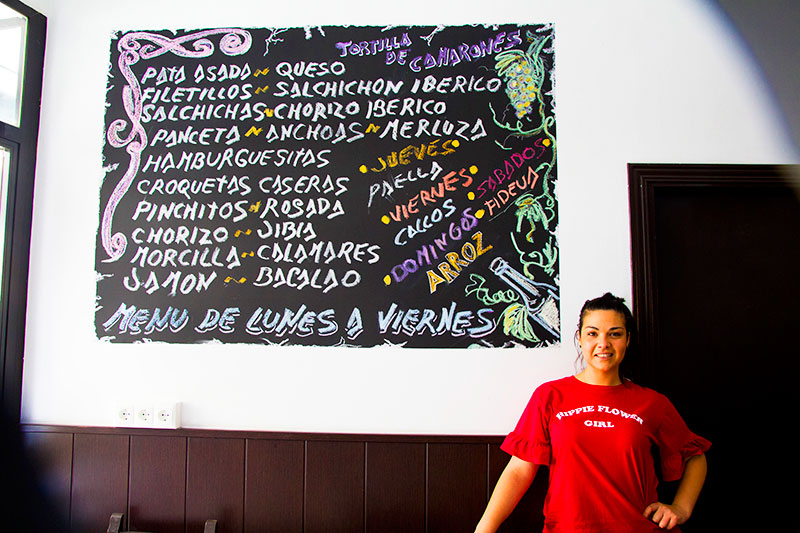 TORTILLA
DE CAMARONES
PATA ASADA ~ QUESO
FILETILLOS ~ SALCHICHON IBERICO
SALCHICHAS ~ CHORIZO IBERICO
PANCETA ~ ANCHOAS ~ MERLUZA
HAMBURGUESITAS
CROQUETAS CASERAS
PINCHITOS ~ ROSADA
CHORIZO ~ JIBIA
MORCILLA ~ CALAMARES
JAMON ~ BACALAO
JUEVES
PAELLA
VIERNES
CALLOS
SABADOS
FIDEUA
DOMINGOS
ARROZ
MENU DE LUNES A VIERNES
HIPPIE FLOWER
GIRL